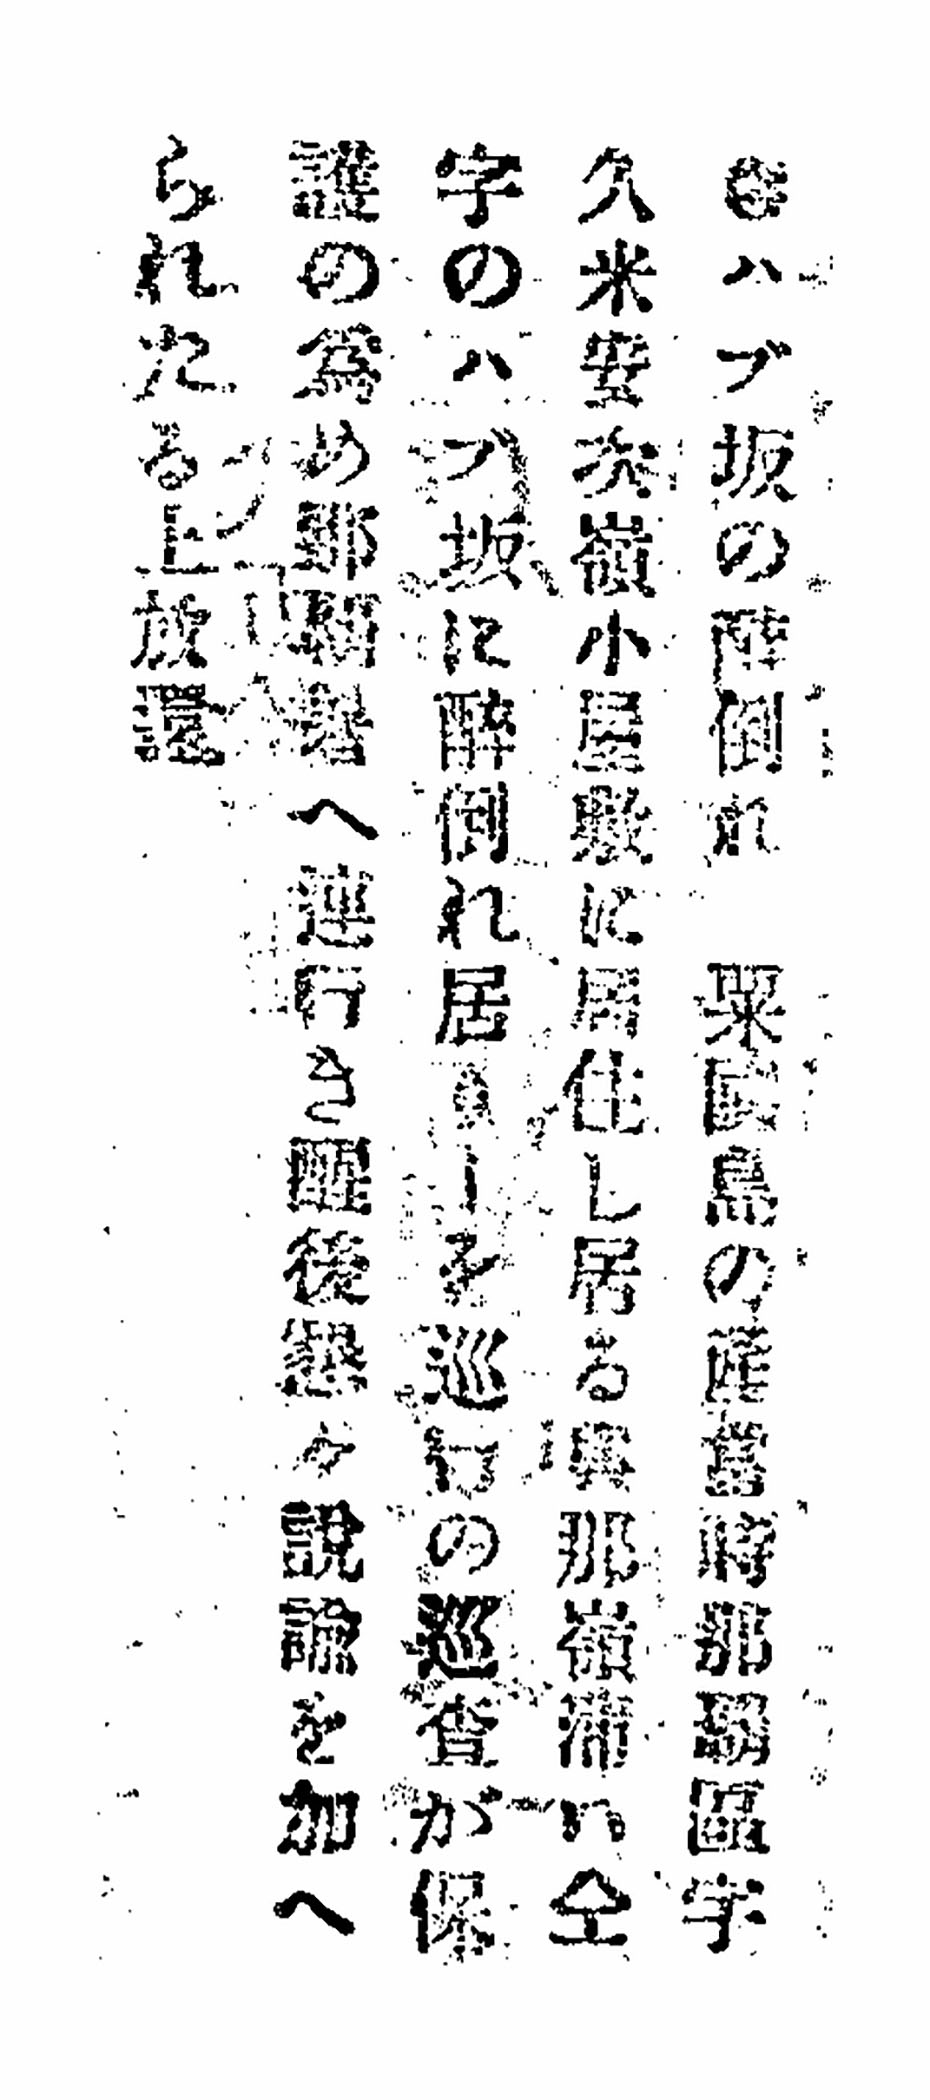 ●ハブ坂の醉倒れ　粟國島の産當時那覇區字
久米安次嶺小屋敷に居住し居る與那嶺蒲ハ仝
字のハブ坂に醉倒れ居るを巡回の巡査が保
護の爲め那覇署へ連行き醒後懇々説諭を加へ
られたる上放還